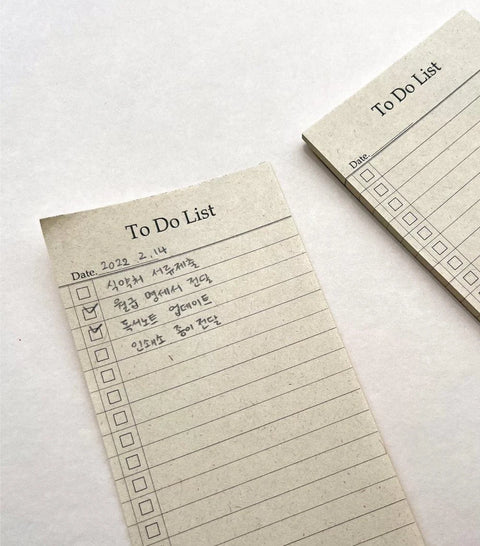 To Do List
Date. 2022 2.14
식약처 서류제출
월급 명세서 전달
독서노트 업데이트
인쇄소 종이 전달
To Do List
Date.